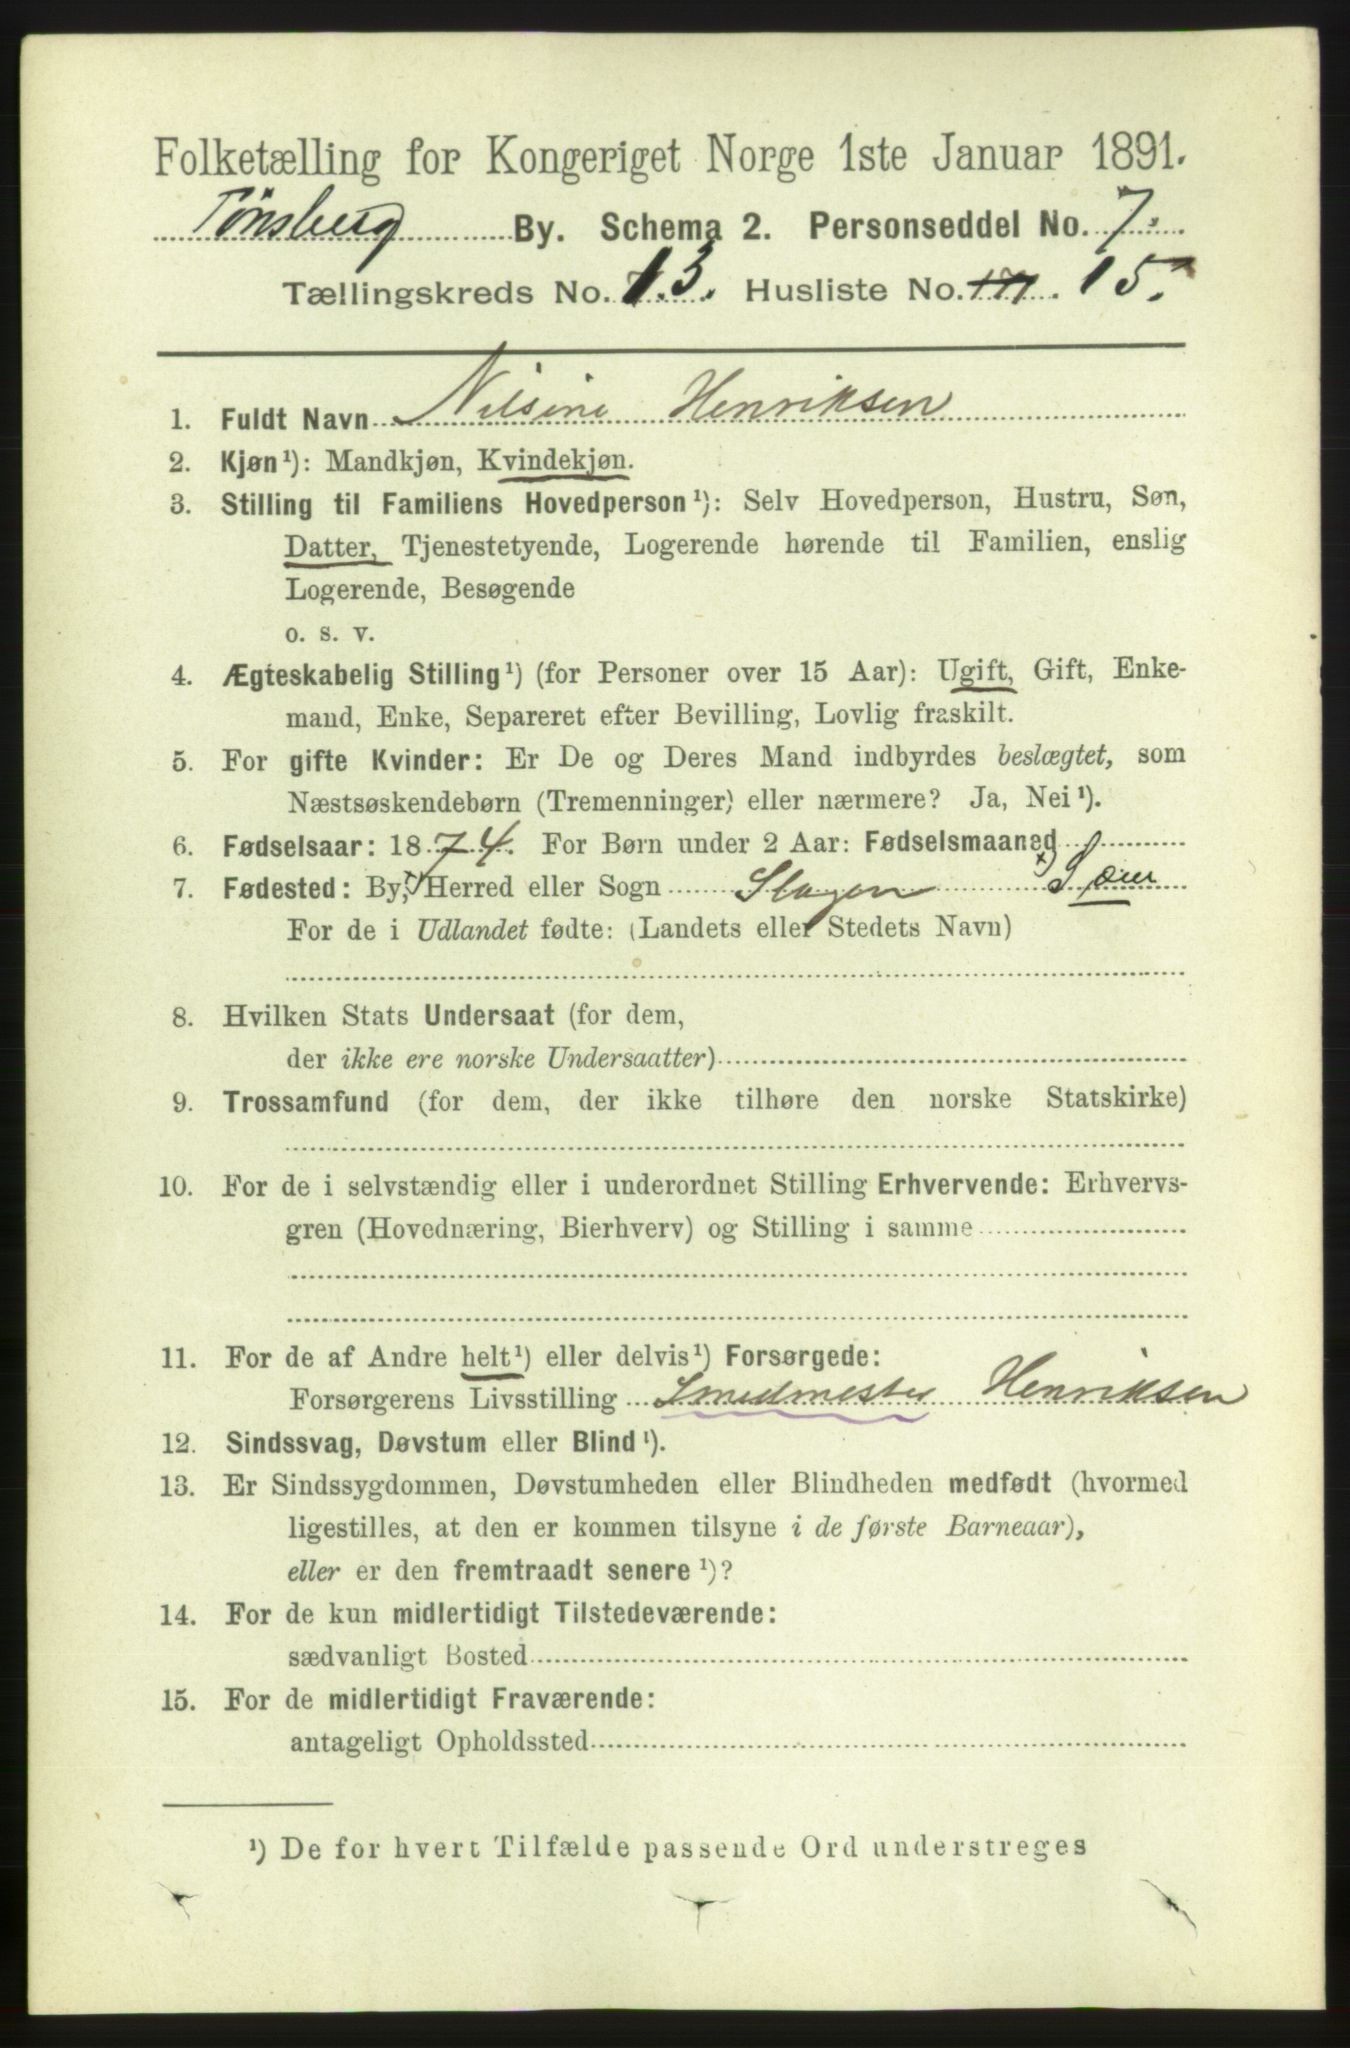 Folketælling for Kongeriget Norge 1ste Januar 1891.
Tønsberg By. Schema 2. Personseddel No. 7.
Tællingskreds No. 13. Husliste No. 15.
1. Fuldt Navn Nilsine Henriksen
2. Kjøn¹): Mandkjøn, Kvindekjøn.
3. Stilling til Familiens Hovedperson¹): Selv Hovedperson, Hustru, Søn,
Datter, Tjenestetyende, Logerende hørende til Familien, enslig
Logerende, Besøgende
o. s. v.
4. Ægteskabelig Stilling¹) (for Personer over 15 Aar): Ugift, Gift, Enke-
mand, Enke, Separeret efter Bevilling, Lovlig fraskilt.
5. For gifte Kvinder: Er De og Deres Mand indbyrdes beslægtet, som
Næstsøskendebørn (Tremenninger) eller nærmere? Ja, Nei¹).
6. Fødselsaar: 1874. For Børn under 2 Aar: Fødselsmaaned
7. Fødested: By, Herred eller Sogn Slagen
For de i Udlandet fødte: (Landets eller Stedets Navn)
8. Hvilken Stats Undersaat (for dem,
der ikke ere norske Undersaatter)
9. Trossamfund (for dem, der ikke tilhøre den norske Statskirke)
10. For de i selvstændig eller i underordnet Stilling Erhvervende: Erhvervs-
gren (Hovednæring, Bierhverv) og Stilling i samme
11. For de af Andre helt¹) eller delvis¹) Forsørgede:
Forsørgerens Livsstilling Smedmester Henriksen
12. Sindssvag, Døvstum eller Blind¹).
13. Er Sindssygdommen, Døvstumheden eller Blindheden medfødt (hvormed
ligestilles, at den er kommen tilsyne i de første Barneaar),
eller er den fremtraadt senere¹)?
14. For de kun midlertidigt Tilstedeværende:
sædvanligt Bosted
15. For de midlertidigt Fraværende:
antageligt Opholdssted
¹) De for hvert Tilfælde passende Ord understreges